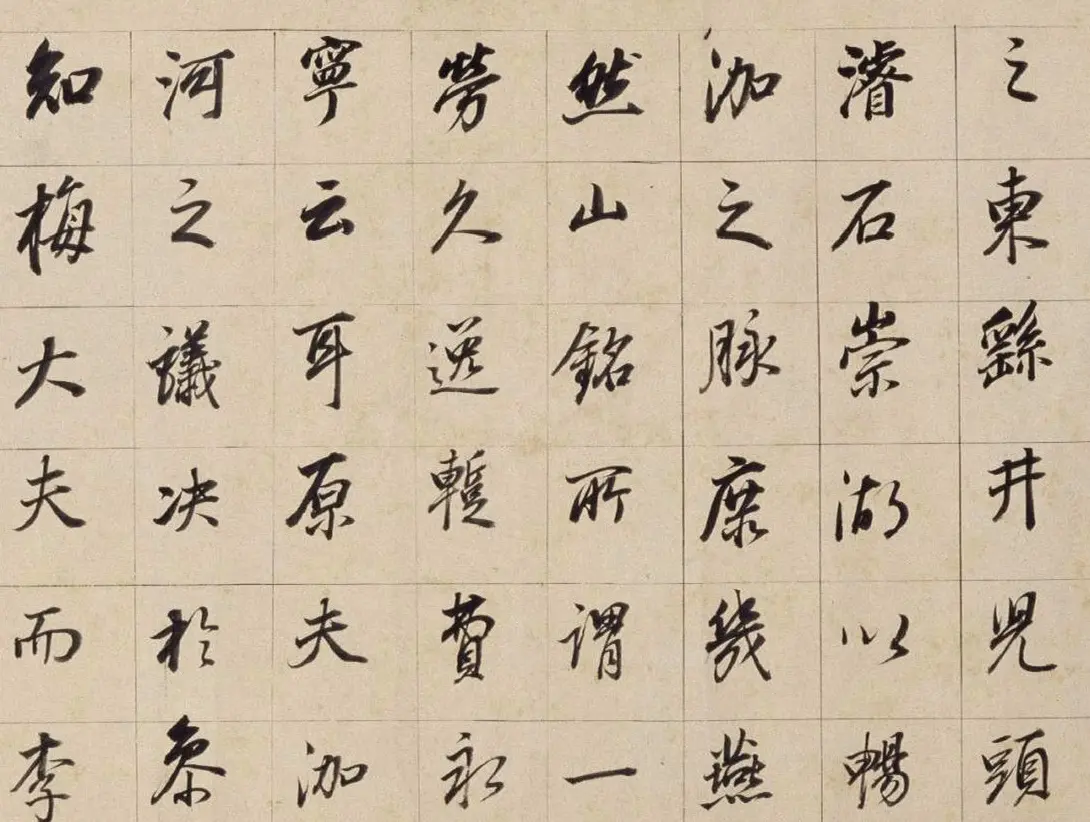 之東繇井兒頭
濬石崇湖以暢
泇之脉庶幾燕
然山銘所謂一
勞久逸蹔費永
寧云耳原夫泇
河之議决於叅
知梅大夫而李